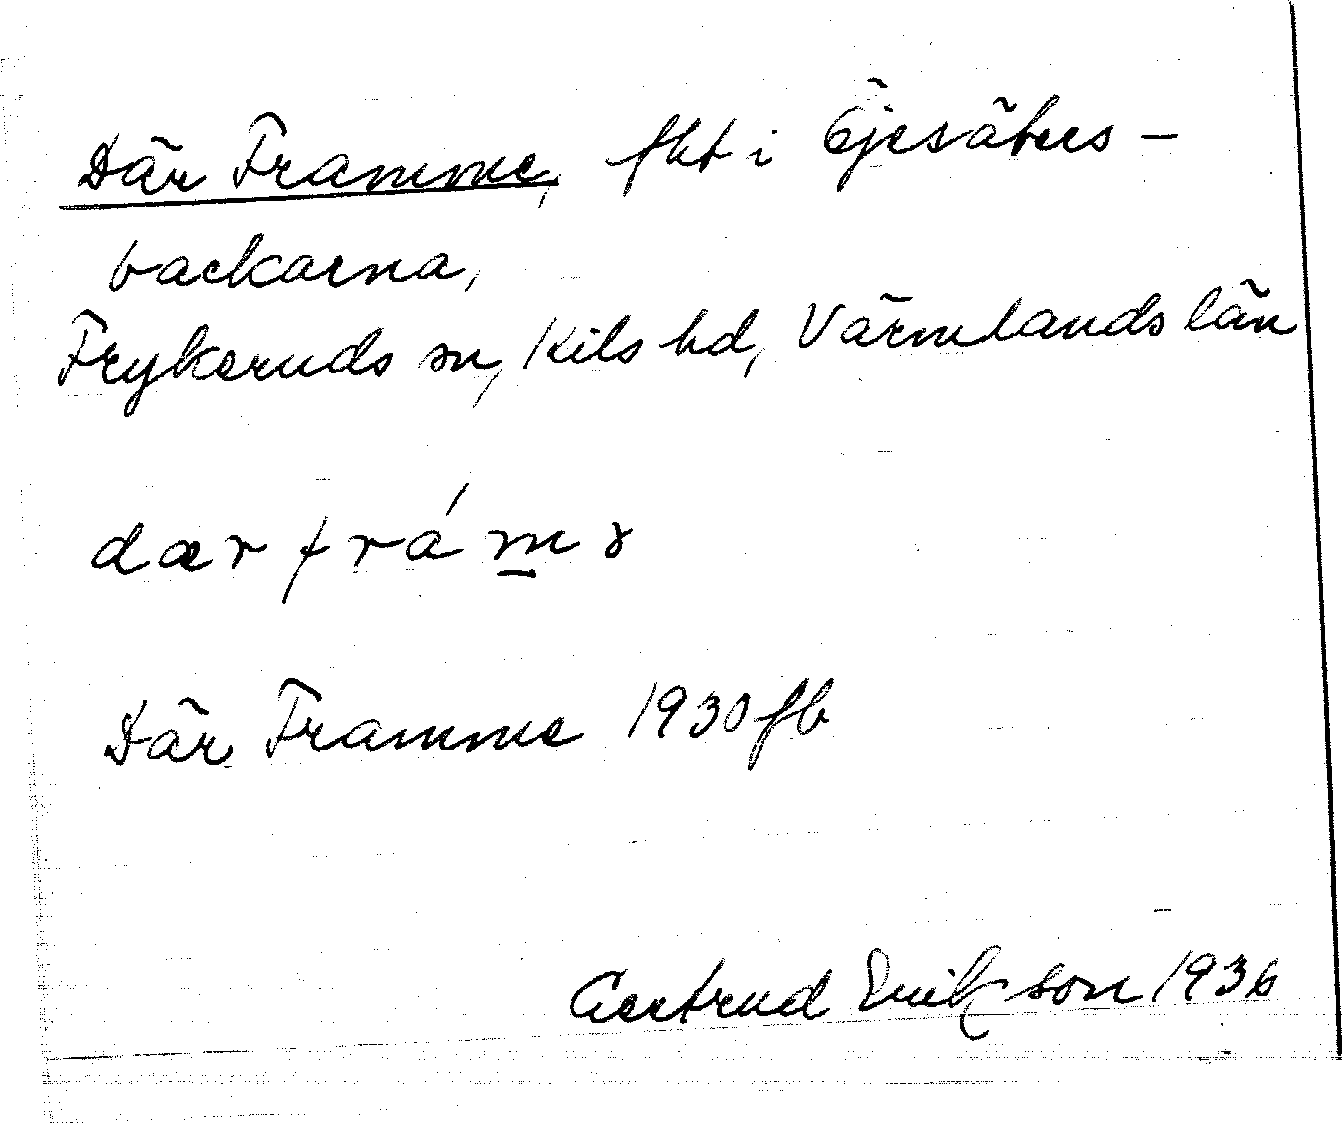 Där Framme, fht i Öjesäters-
backarna,
Frykeruds sn, Kils hd, Värmlands län
dær frámə
Där Framme 1930 fb
Gertrud Erikson 1936